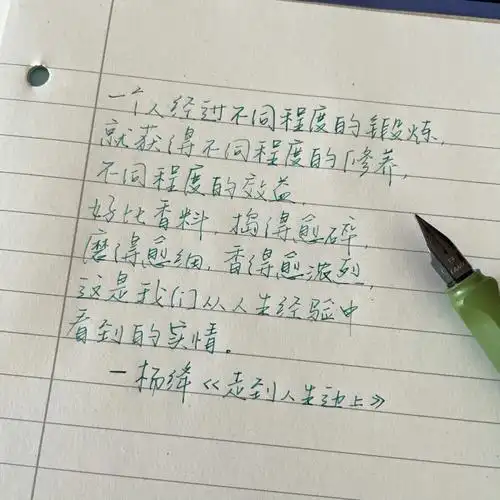 一个人经过不同程度的锻炼，
就获得不同程度的修养，
不同程度的效益。
好比香料，捣得愈碎，
磨得愈细，香得愈浓烈，
这是我们从人生经验中
看到的实情。
一杨绛《走到人生边上》